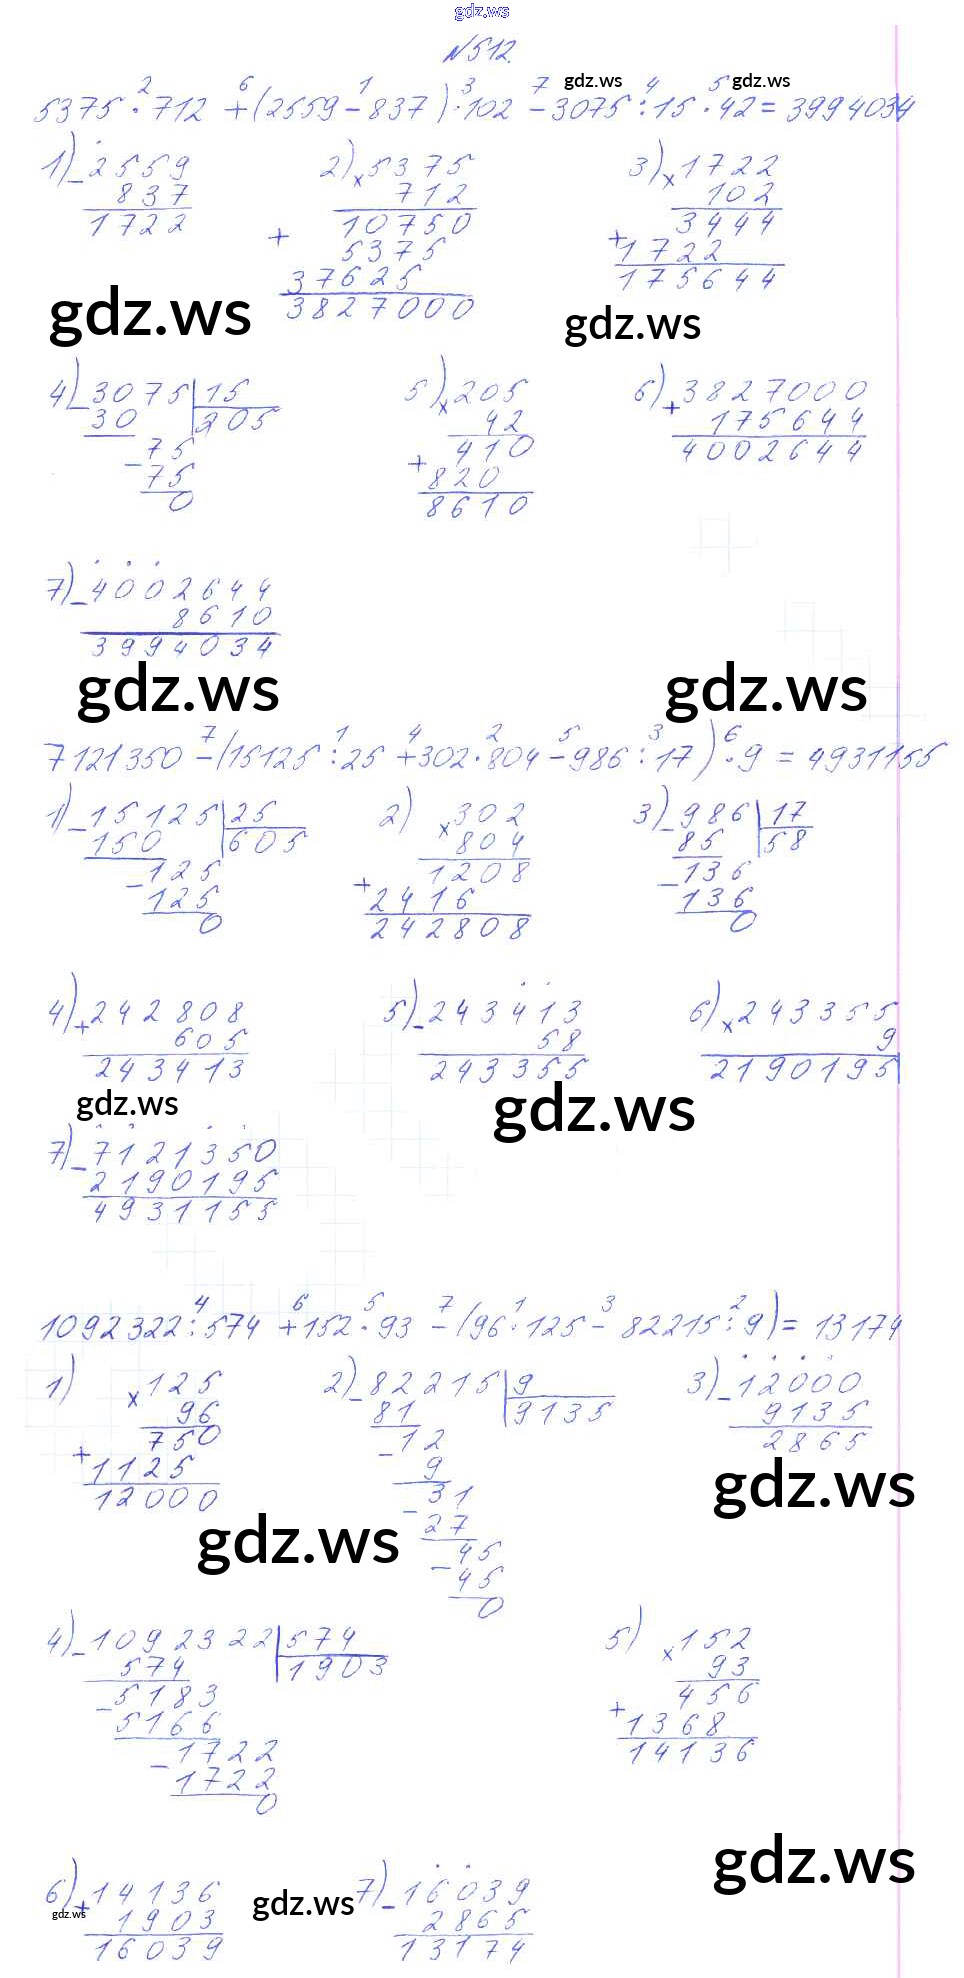 gdz.ws
№512.
2 6 1 3 7 gdz.ws 4 5 gdz.ws
5375 · 712 + (2559 - 837) · 102 - 3075 : 15 · 42 = 3994034
1) - 2559 2) × 5375 3) × 1722
837 712 102
1722 10750 3444
+ 5375 + 1722
37625 175644
gdz.ws 3827000 gdz.ws
4) - 3075 | 15 5) × 205 6) + 3827000
30 205 42 175644
- 75 410 4002644
75 + 820
0 8610
7) - 4002644
8610
3994034
gdz.ws gdz.ws
7 1 4 2 5 3 6
7121350 - (15125 : 25 + 302 · 804 - 986 : 17) · 9 = 4931155
1) - 15125 | 25 2) × 302 3) - 986 | 17
150 605 804 85 58
- 125 1208 - 136
125 + 2416 136
0 242808 0
4) + 242808 5) - 243413 6) × 243355
605 58 9
243413 243355 2190195
gdz.ws gdz.ws
7) - 7121350
2190195
4931155
4 6 5 7 1 3 2
1092322 : 574 + 152 · 93 - (96 · 125 - 82215 : 9) = 13174
1) × 125 2) - 82215 | 9 3) - 12000
96 81 9135 9135
750 - 12 2865
+ 1125 9 gdz.ws
12000 - 31
gdz.ws 27
- 45
45
0
4) - 1092322 | 574 5) × 152
574 1903 93
- 5183 456
5166 + 1368
- 1722 14136
1722
0
gdz.ws
6) + 14136 gdz.ws 7) - 16039
gdz.ws 1903 2865
16039 13174